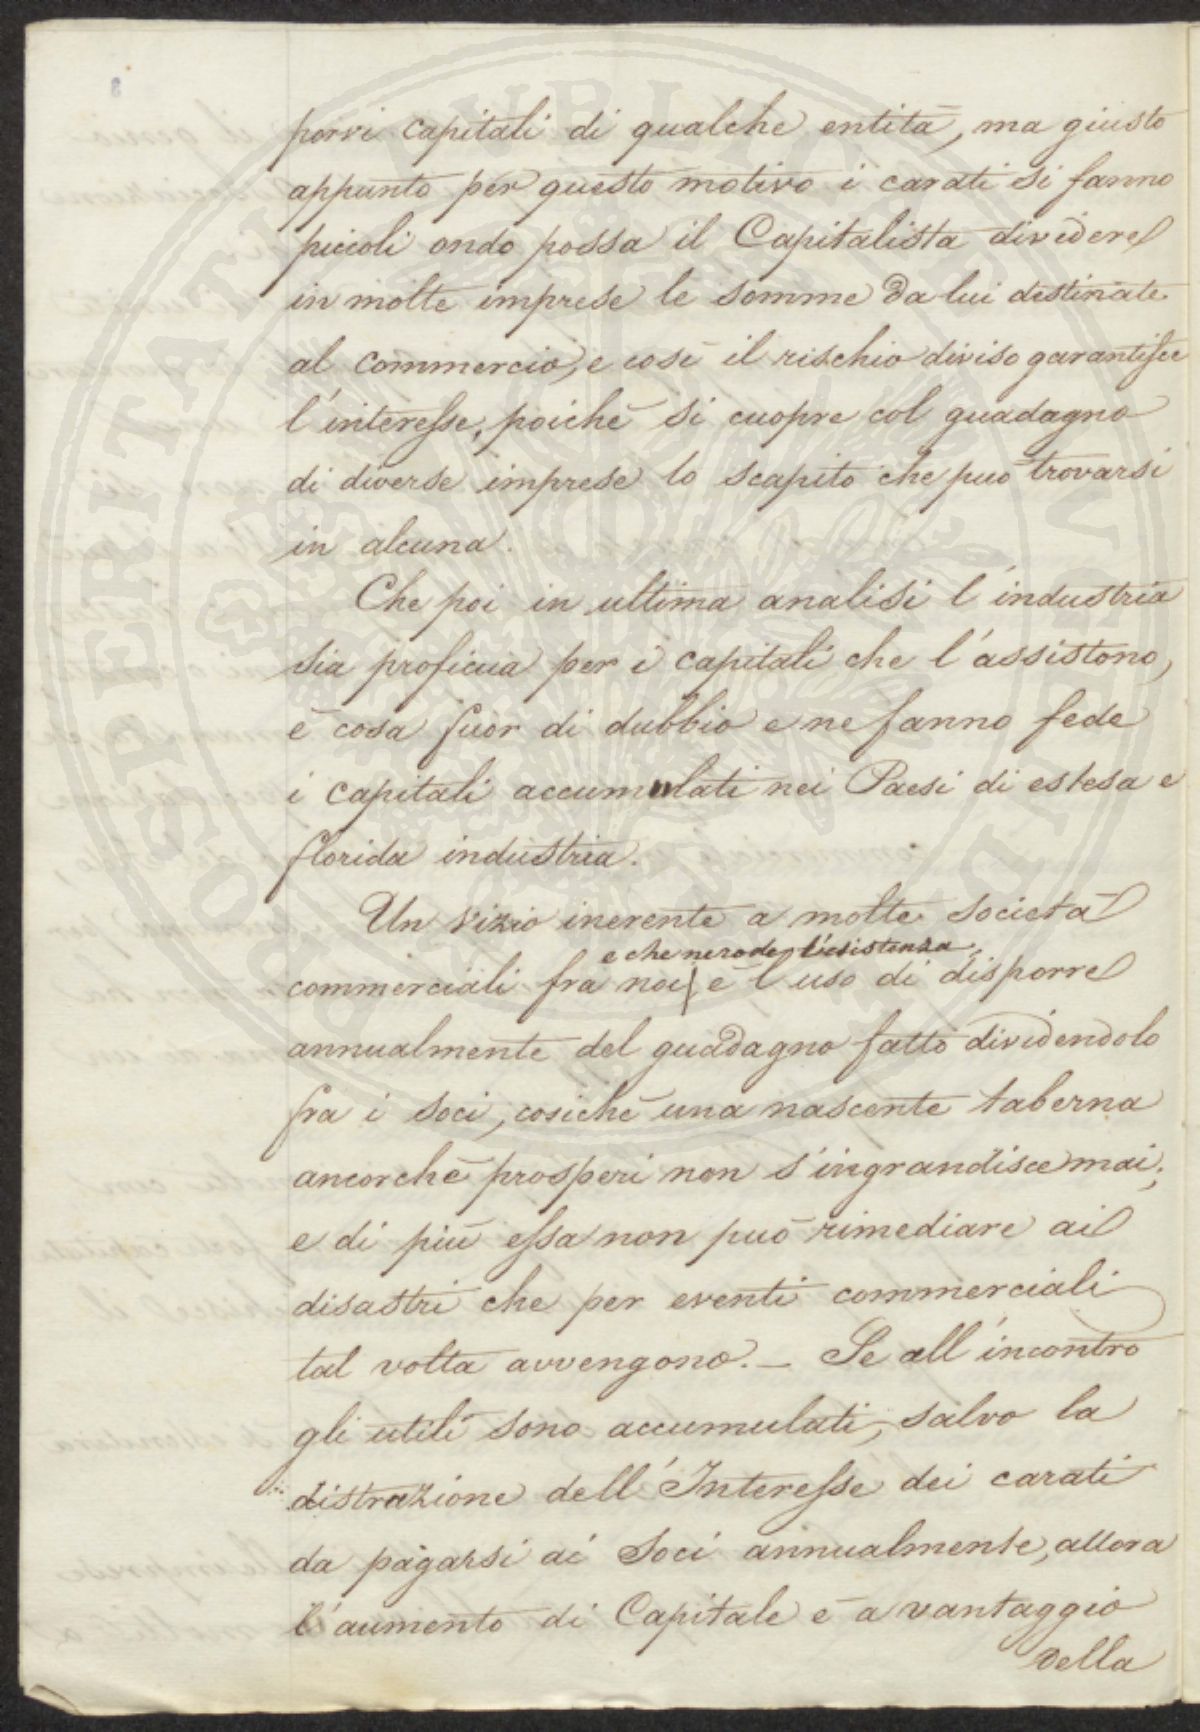 porvi capitali di qualche entità, ma giusto
appunto per questo motivo i carati si fanno
piccoli onde possa il Capitalista dividere
in molte imprese le somme da lui destinate
al commercio, e così il rischio diviso garantisce
l'interesse, poichè si cuopre col guadagno
di diverse imprese lo scapito che può trovarsi
in alcuna.
Che poi in ultima analisi l'industria
sia proficua per i capitali che l'assistono,
è cosa fuor di dubbio e ne fanno fede
i capitali accumulati nei Paesi di estesa e
florida industria.
Un vizio inerente a molte società
e che ne rode l'esistenza
commerciali fra noi, è l'uso di disporre
annualmente del guadagno fatto dividendolo
fra i soci, cosichè una nascente taberna
ancorchè prosperi non s'ingrandisce mai;
e di più essa non può rimediare ai
disastri che per eventi commerciali
tal volta avvengono. – Se all'incontro
gli utili sono accumulati, salvo la
distrazione dell'Interesse dei carati
da pagarsi ai Soci annualmente, allora
l'aumento di Capitale è a vantaggio
della
PROSPERITATI PUBLICAE